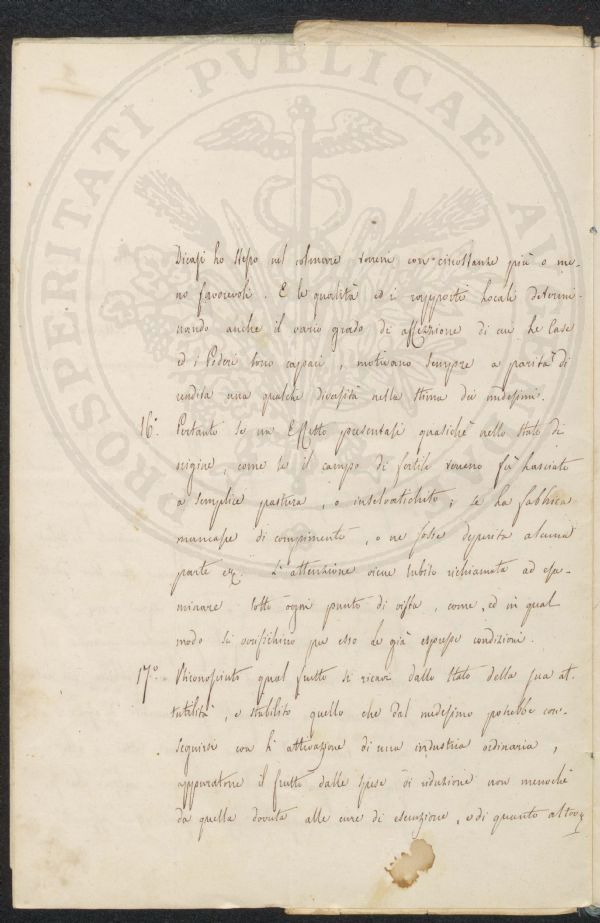 PROSPERITATI PVBLICAE AVGENDAE
Dicasi lo stesso nel estimare terreni con circostanze più o me-
no favorevoli. E le qualità ed i rapporti locali determi-
nando anche il vario grado di affezzione di cui le Case
ed i Poderi sono cappaci, motivano sempre a parità di
rendita una qualche diversità nella stima dei medesimi.
16°. Pertanto se un Effetto presentasi quasichè nello stato di
origine, come se il campo di fertile terreno fù lasciato
a semplice pastura, o inselvatichito; se la fabbrica
mancasse di compimento, o ne fosse deperita alcuna
parte ec. L'attenzione viene subito richiamata ad esa-
minare sotto ogni punto di vista, come, ed in qual
modo si verifichino per esso le già espresse condizioni.
17°. Riconosciuto qual frutto si ricavi dallo stato della sua at-
tualità, e stabilito quello che dal medesimo potrebbe con-
seguirsi con l'attivazione di una industria ordinaria,
appuratone il frutto dalle spese di riduzione non menochè
da quella dovuta alle cure di esecuzione, e di quanto altro